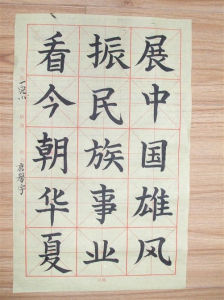 展中国雄风
振民族事业
看今朝华夏